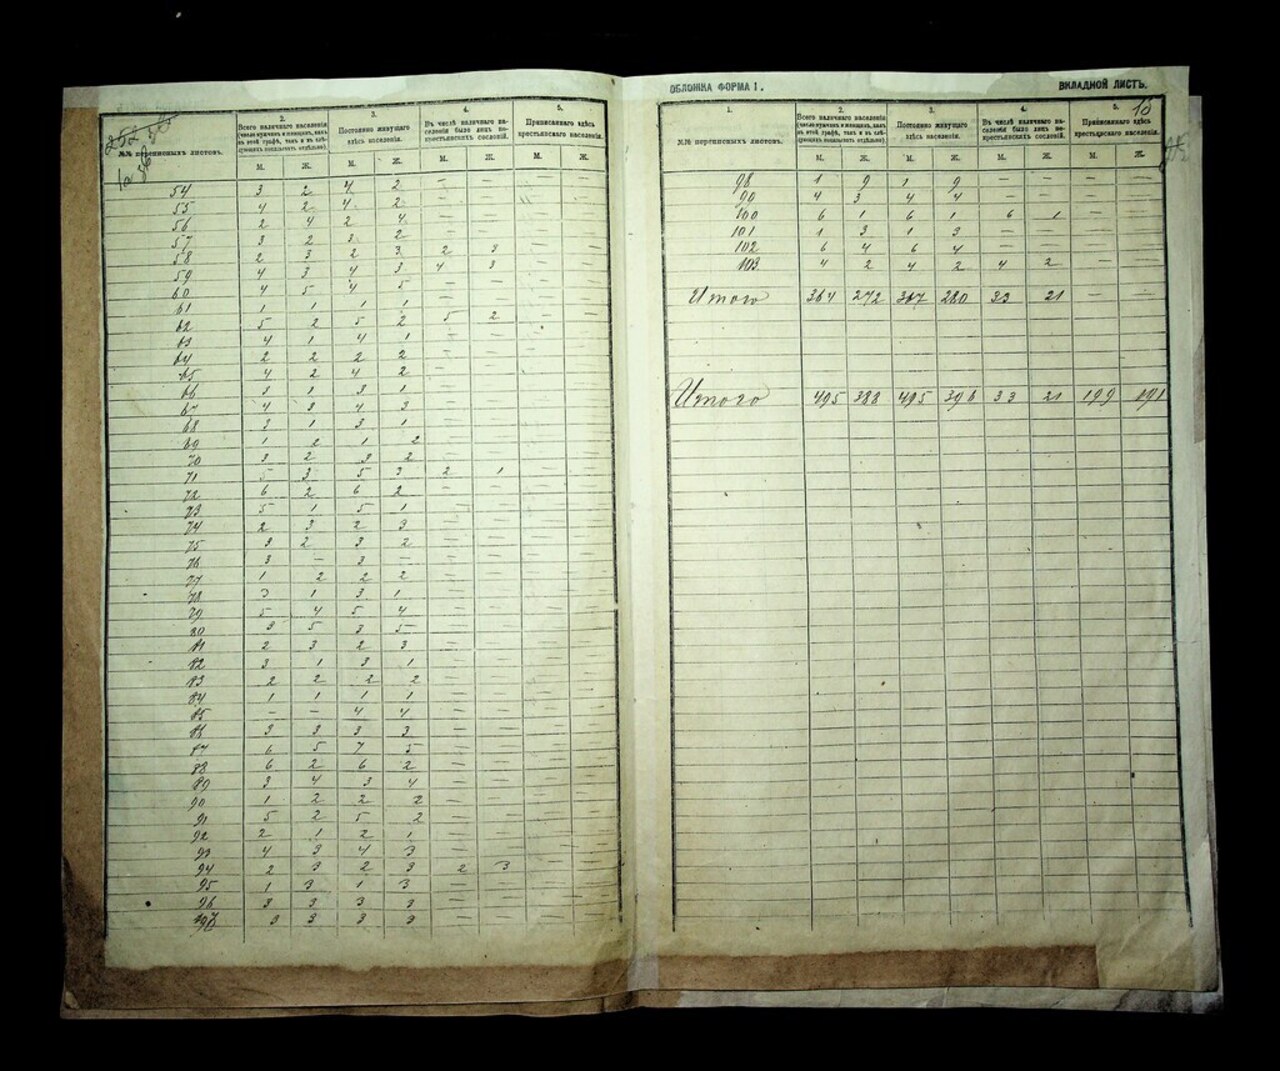 252
1.
№№ переписныхъ листовъ.
2.
Всего наличнаго населенія (число мужчинъ и женщинъ, какъ въ этой графѣ, такъ и въ слѣдующихъ показывать отдѣльно).
3.
Постоянно живущаго здѣсь населенія.
4.
Въ числѣ наличнаго населенія было лицъ некрестьянскихъ сословій.
5.
Приписаннаго здѣсь крестьянскаго населенія.
М. Ж. М. Ж. М. Ж. М. Ж.
54 3 2 4 2 — — — —
55 4 2 4 2 — — — —
56 2 4 2 4 — — — —
57 3 2 3 2 — — — —
58 2 3 2 3 2 3 — —
59 4 3 4 3 4 3 — —
60 4 5 4 5 — — — —
61 1 1 1 1 — — — —
62 5 2 5 2 5 2 — —
63 4 1 4 1 — — — —
64 2 2 2 2 — — — —
65 4 2 4 2 — — — —
66 3 1 3 1 — — — —
67 4 3 4 3 — — — —
68 3 1 3 1 — — — —
69 1 2 1 2 — — — —
70 3 2 3 2 — — — —
71 5 3 5 3 2 1 — —
72 6 2 6 2 — — — —
73 5 1 5 1 — — — —
74 2 3 2 3 — — — —
75 3 2 3 2 — — — —
76 3 — 3 — — — — —
77 1 2 2 2 — — — —
78 3 1 3 1 — — — —
79 5 4 5 4 — — — —
80 3 5 3 5 — — — —
81 2 3 2 3 — — — —
82 3 1 3 1 — — — —
83 2 2 2 2 — — — —
84 1 1 1 1 — — — —
85 — — 4 4 — — — —
86 3 3 3 3 — — — —
87 6 5 7 5 — — — —
88 6 2 6 2 — — — —
89 3 4 3 4 — — — —
90 1 2 2 2 — — — —
91 5 2 5 2 — — — —
92 2 1 2 1 — — — —
93 4 3 4 3 — — — —
94 2 3 2 3 2 3 — —
95 1 3 1 3 — — — —
96 3 3 3 3 — — — —
97 3 3 3 3 — — — —
ОБЛОЖКА ФОРМА 1.
ВКЛАДНОЙ ЛИСТЪ.
10
1.
№№ переписныхъ листовъ.
2.
Всего наличнаго населенія (число мужчинъ и женщинъ, какъ въ этой графѣ, такъ и въ слѣдующихъ показывать отдѣльно).
3.
Постоянно живущаго здѣсь населенія.
4.
Въ числѣ наличнаго населенія было лицъ некрестьянскихъ сословій.
5.
Приписаннаго здѣсь крестьянскаго населенія.
М. Ж. М. Ж. М. Ж. М. Ж.
98 1 9 1 9 — — — —
90 4 3 4 4 — — — —
100 6 1 6 1 6 1 — —
101 1 3 1 3 — — — —
102 6 4 6 4 — — — —
103 4 2 4 2 4 2 — —
Итого 364 272 367 280 33 21 — —
Итого 495 388 495 396 33 21 199 191